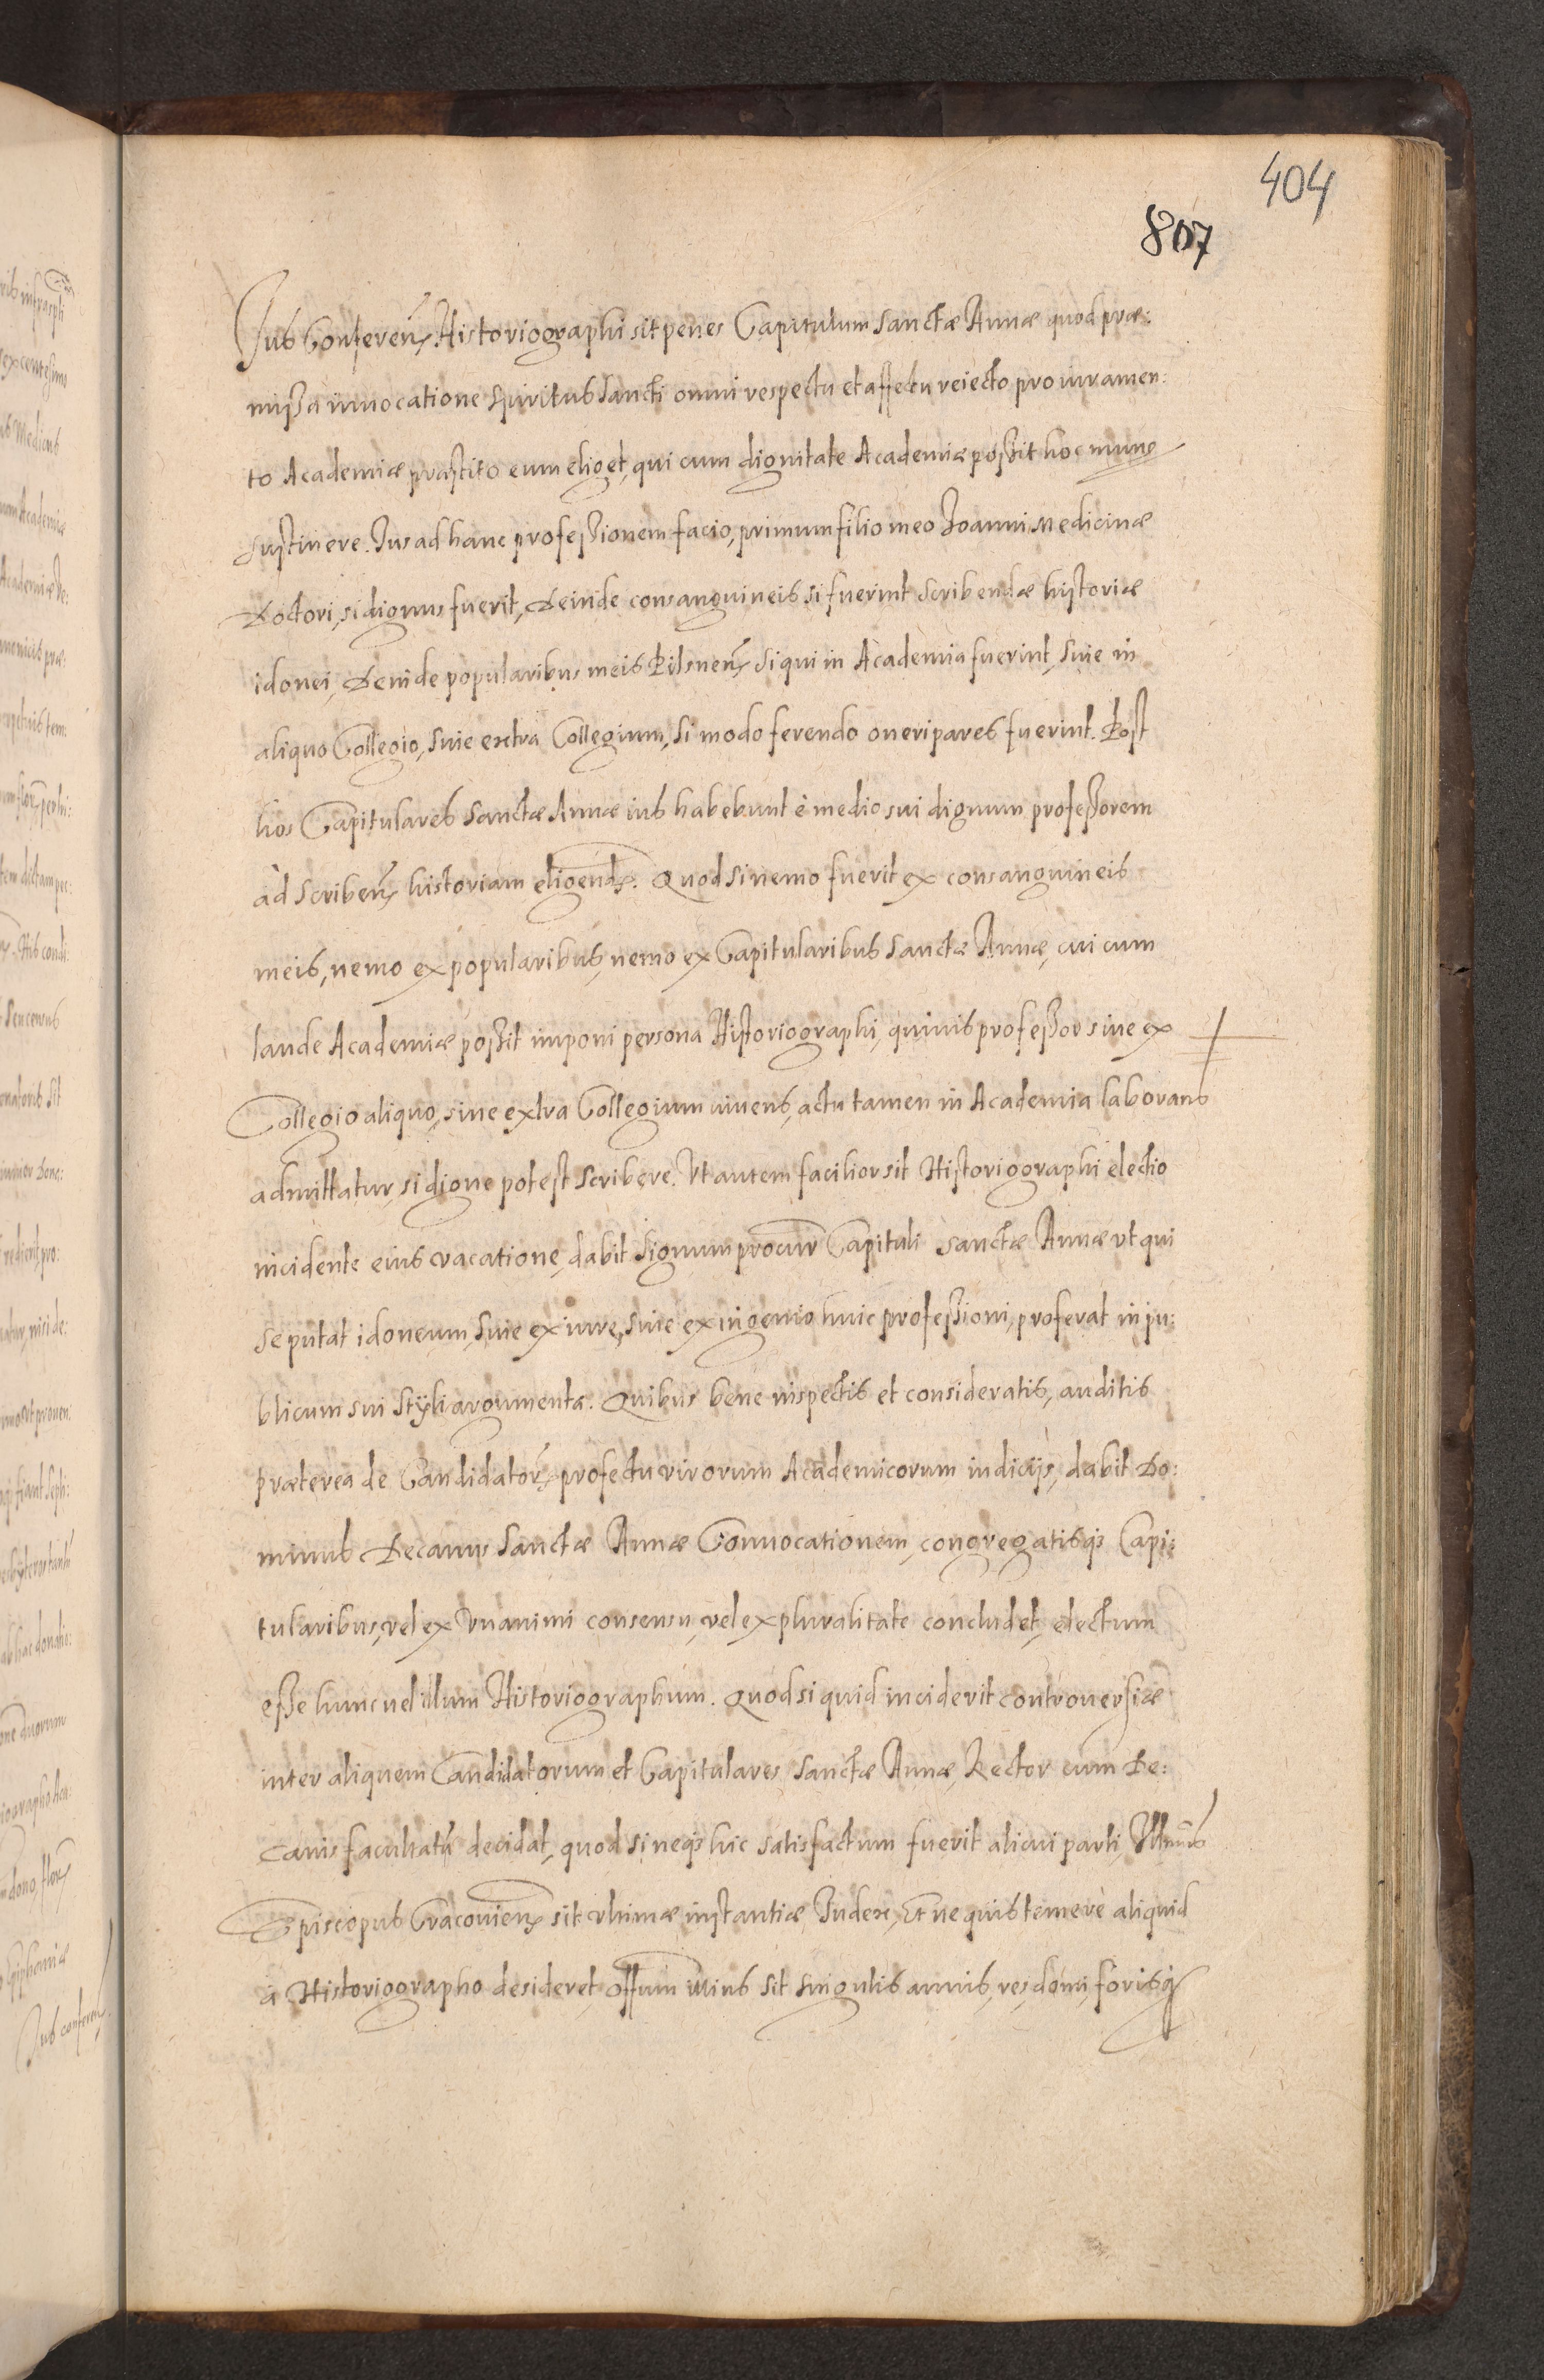 404
807
Jus Conferen Historiographi sit penes Capitulum Sanctæ Annæ quod præ:
mißa inuocatione Spiritus Sancti omni respectu et affectu reiecto pro iuramen:
to Academiæ præstito eum eliget, qui cum dignitate Academiæ poßit hoc mune
sustinere. Ius ad hanc profeßionem facio, primum filio meo Joanni Medicinæ
Doctori, si dignus fuerit, Deinde consanguineis si fuerint scribendæ historiæ
idonei, Deinde popularibus meis Pilsnen, si qui in Academia fuerint, siue in
aliquo Collegio, siue extra Collegium, si modo ferendo oneri pares fuerint. Post
hos Capitulares Sanctæ Annæ ius habebunt è medio sui dignum profeßorem
ad scriben historiam eligend. Quod si nemo fuerit ex consanguineis
meis, nemo ex popularibus, nemo ex Capitularibus Sanctæ Annæ, cui cum
laude Academiæ poßit imponi persona Historiographi, quiuis profeßor siue ex
Collegio aliquo, siue extra Collegium viuens, actu tamen in Academia laborans
admittatur, si digne potest scribere. Vt autem facilior sit Historiographi electio
incidente eius vacatione, dabit signum procur Capituli Sanctæ Annæ vt qui
se putat idoneum, siue ex iure, siue ex ingenio huic profeßioni, proferat in pu:
blicum sui styli argumenta. Quibus bene inspectis et consideratis, auditis
præterea de Candidator profectu virorum Academicorum iudicijs, dabit Do:
minus Decanus Sanctæ Annæ Conuocationem, congregatisqs Capi:
tularibus, vel ex vnanimi consensu, vel ex pluralitate concludet, electum
eße hunc uel illum Historiographum. Quod si quid inciderit controuersiæ
inter aliquem Candidatorum et Capitulares Sanctæ Annæ, Rector cum De:
canis facultatũ decidat, quod si neqs hic satisfactum fuerit alicui parti, Illmus
Episcopus Cracouien sit vltimæ instantiæ Judex, Et ne quis temere aliquid
à Historiographo desideret, offum illius sit singulis annis, res domi, forisq